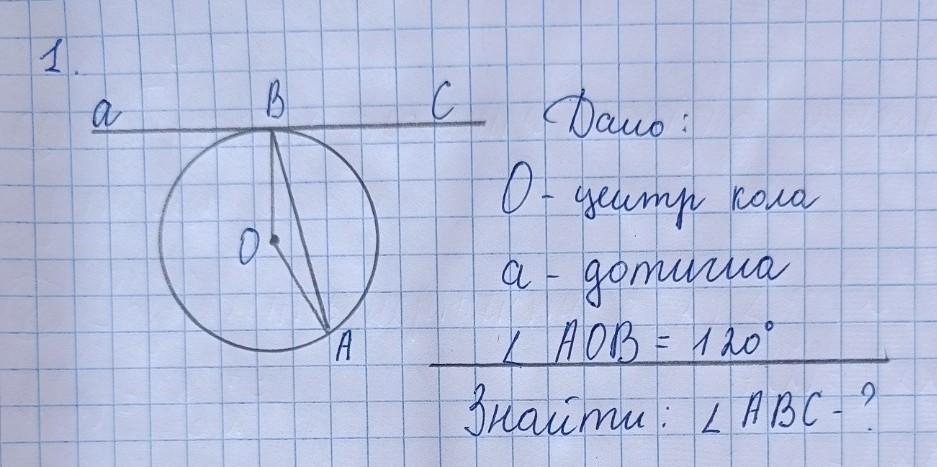 1.
a B C
O
A
Дано:
O - центр кола
a - дотична
∠ AOB = 120°
Знайти: ∠ ABC - ?